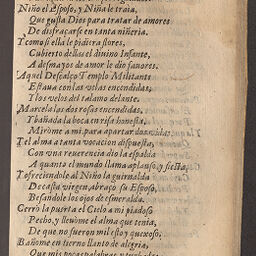 Niño el Esposo, y Niña le traia,
Que gusta Dios para tratar de amores
De disfraçarse en tanta niñeria.
Y como si ella le pidiera flores,
Cubierto dellas el diuino Infante,
A desmayos de amor le dio fauores.
Aquel Descalço Templo Militante
Estaua con las velas encendidas,
Y los velos del talamo delante.
Marcela las dos rosas encendidas,
Y bañada la boca en risa honesta,
Miròme a mi para apartar dos vidas.
Y el alma a tanta vocacion dispuesta,
Con vna reuerencia dio la espalda
A quanto el mundo llama aplauso, y fiesta,
Y ofreciendole al Niño la guirnalda
De casta virgen, abraçò su Esposo,
Besandole los ojos de esmeralda.
Cerrò la puerta el Cielo a mi piadoso
Pecho, y lleuòme el alma que tenia,
De que no fueron mil estoy quexoso.
Bañome en tierno llanto de alegria,
Que mis pocas palabras